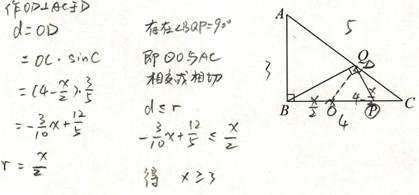 作OD⊥AC于D
d=OD
=OC·sinC
=(4-x/2)·3/5
=-3/10x+12/5
r=x/2
存在∠BQP=90°
即⊙O与AC
相交或相切
d≤r
-3/10x+12/5≤x/2
得 x≥3
A
5
3
Q
D
B
x/2
O
4-x/2
P
C
4